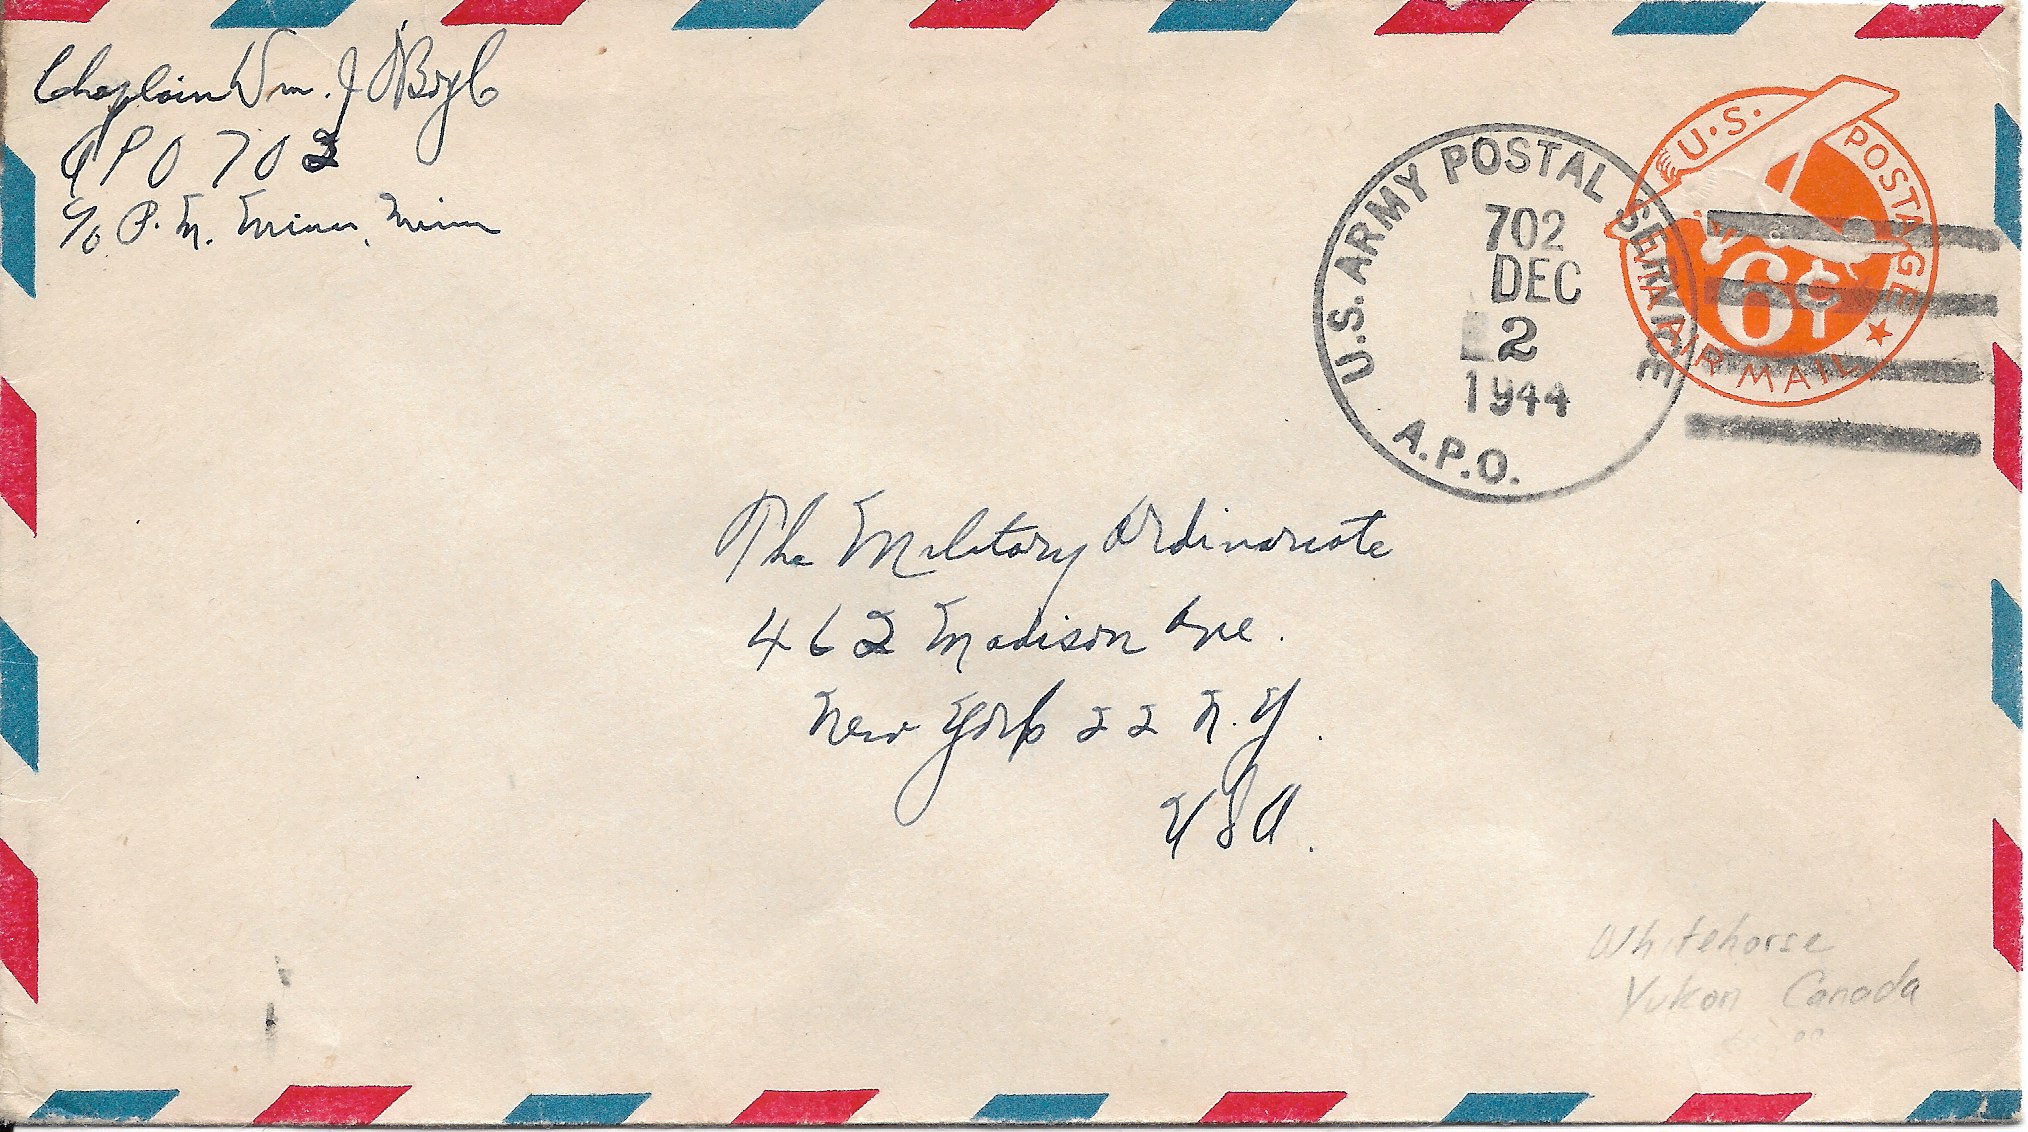 Chaplain Wm. J O'Boyle
APO 702
c/o P. M. Minn
U.S. ARMY POSTAL SERVICE
702
DEC
2
1944
A.P.O.
U.S. POSTAGE
VIA AIR MAIL
6¢
The Military Ordinariate
462 Madison Ave.
New York 22 N.Y.
USA.
Whitehorse
Yukon Canada